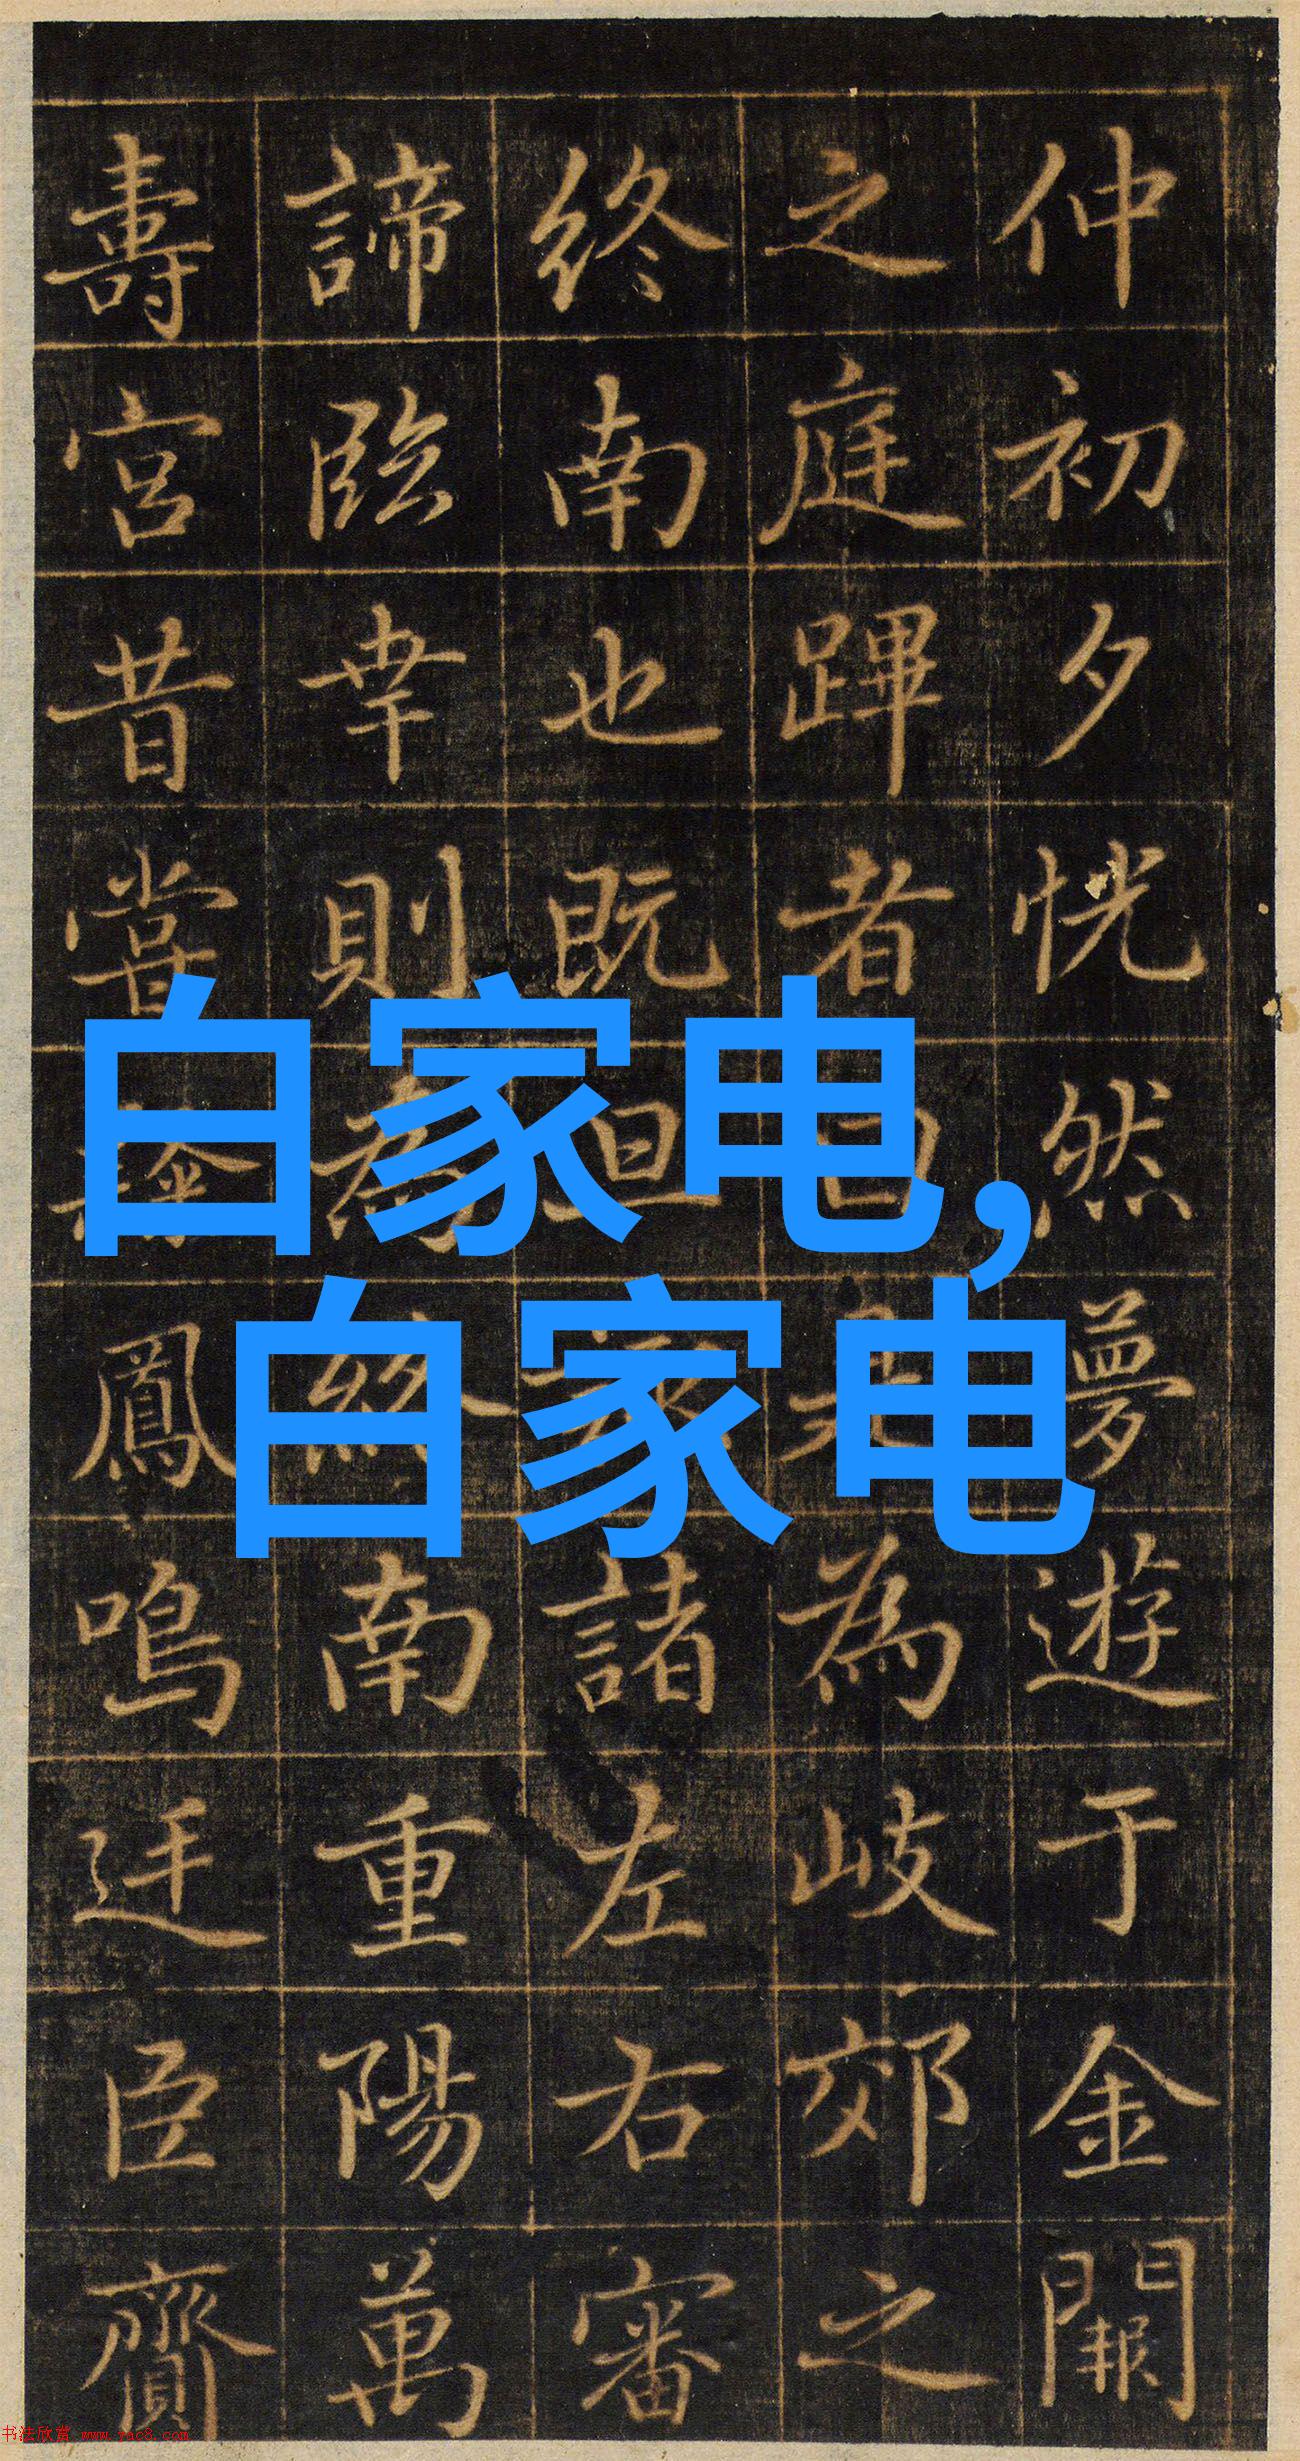 仲初夕恍然夢遊于金闕
之庭蹕者為岐郊之
終南也既旦諸左右審
諦臨幸則為終南重陽萬
壽宮昔嘗鳳鳴廷臣齎
白家电,
白家电
书法欣赏 www.yac8.com